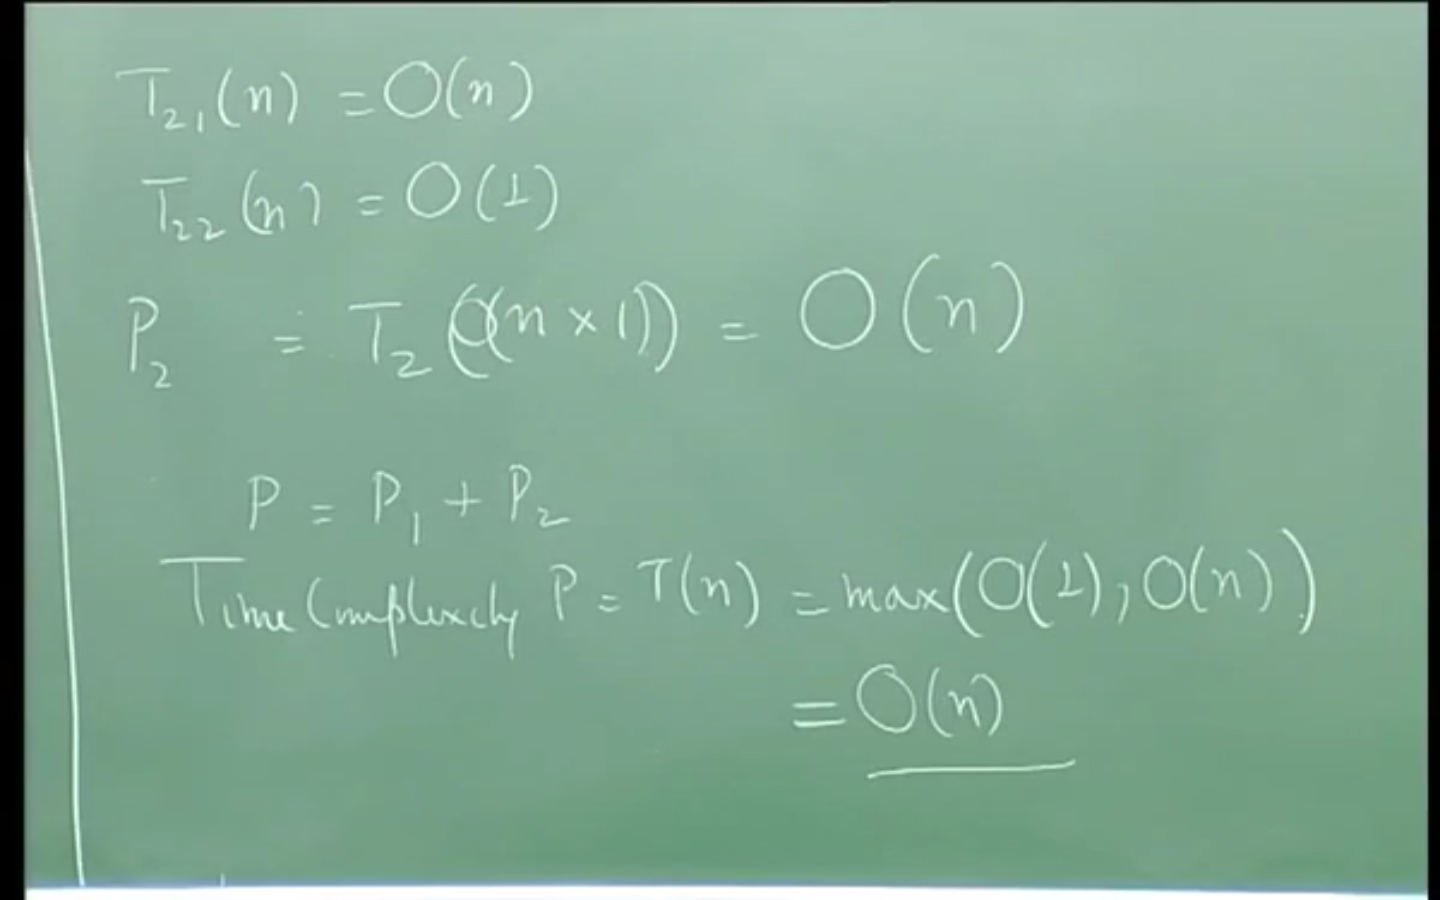 T₂₁(n) = O(n)
T₂₂(n) = O(1)
P₂ = T₂(O(n × 1)) = O(n)
P = P₁ + P₂
Time Complexity P = T(n) = max(O(1), O(n))
= O(n)